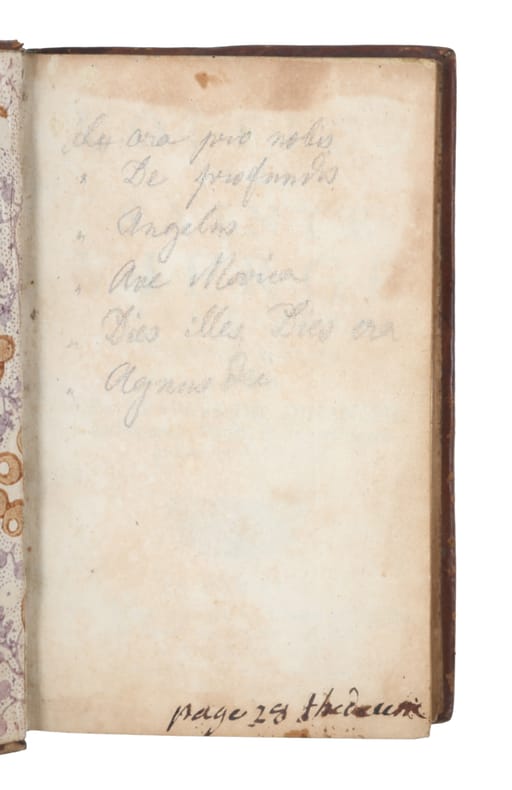 La ora pro nobis
" De profundis
" Angelus
" Ave Maria
" Dies illes Dies era
" Agnus Dei
page 28 thedeum